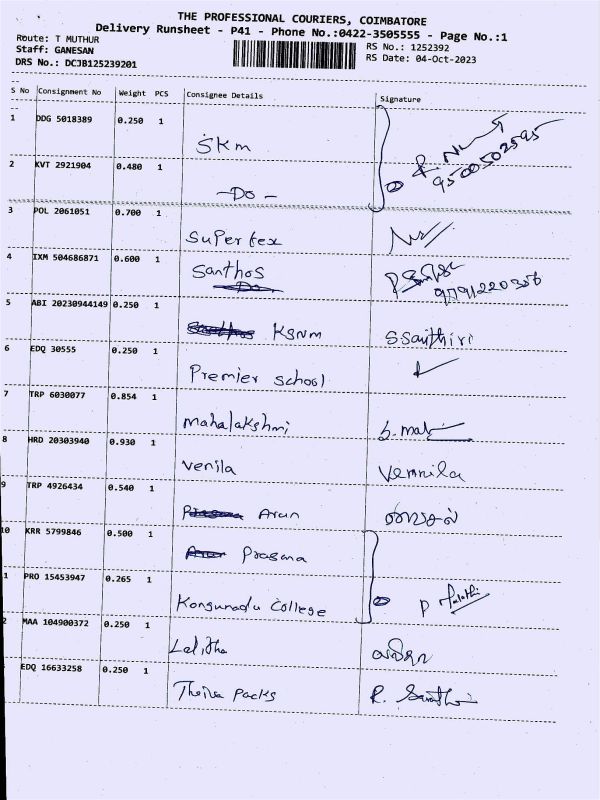 THE PROFESSIONAL COURIERS, COIMBATORE
Delivery Runsheet - P41 - Phone No.:0422-3505555 - Page No.:1
Route: T MUTHUR RS No.: 1252392
Staff: GANESAN RS Date: 04-Oct-2023
DRS No.: DCJB125239201
S No Consignment No Weight PCS Consignee Details Signature
1 DDG 5018389 0.250 1
SKM
9500502595
2 KVT 2921904 0.480 1
-Do-
3 POL 2061051 0.700 1
Supertex
4 IXM 504686871 0.600 1
Santhos
9791220306
5 ABI 20230944149 0.250 1
KSNM SSanthiri
6 EDQ 30555 0.250 1
Premier school
7 TRP 6030077 0.854 1
mahalakshmi
8 HRD 20303940 0.930 1
Venila Vennila
9 TRP 4926434 0.540 1
Arun
10 KRR 5799846 0.500 1
Prasana
1 PRO 15453947 0.265 1
Kongunadu College P
2 MAA 104900372 0.250 1
Lalitha
EDQ 16633258 0.250 1
Theiva Packs R.